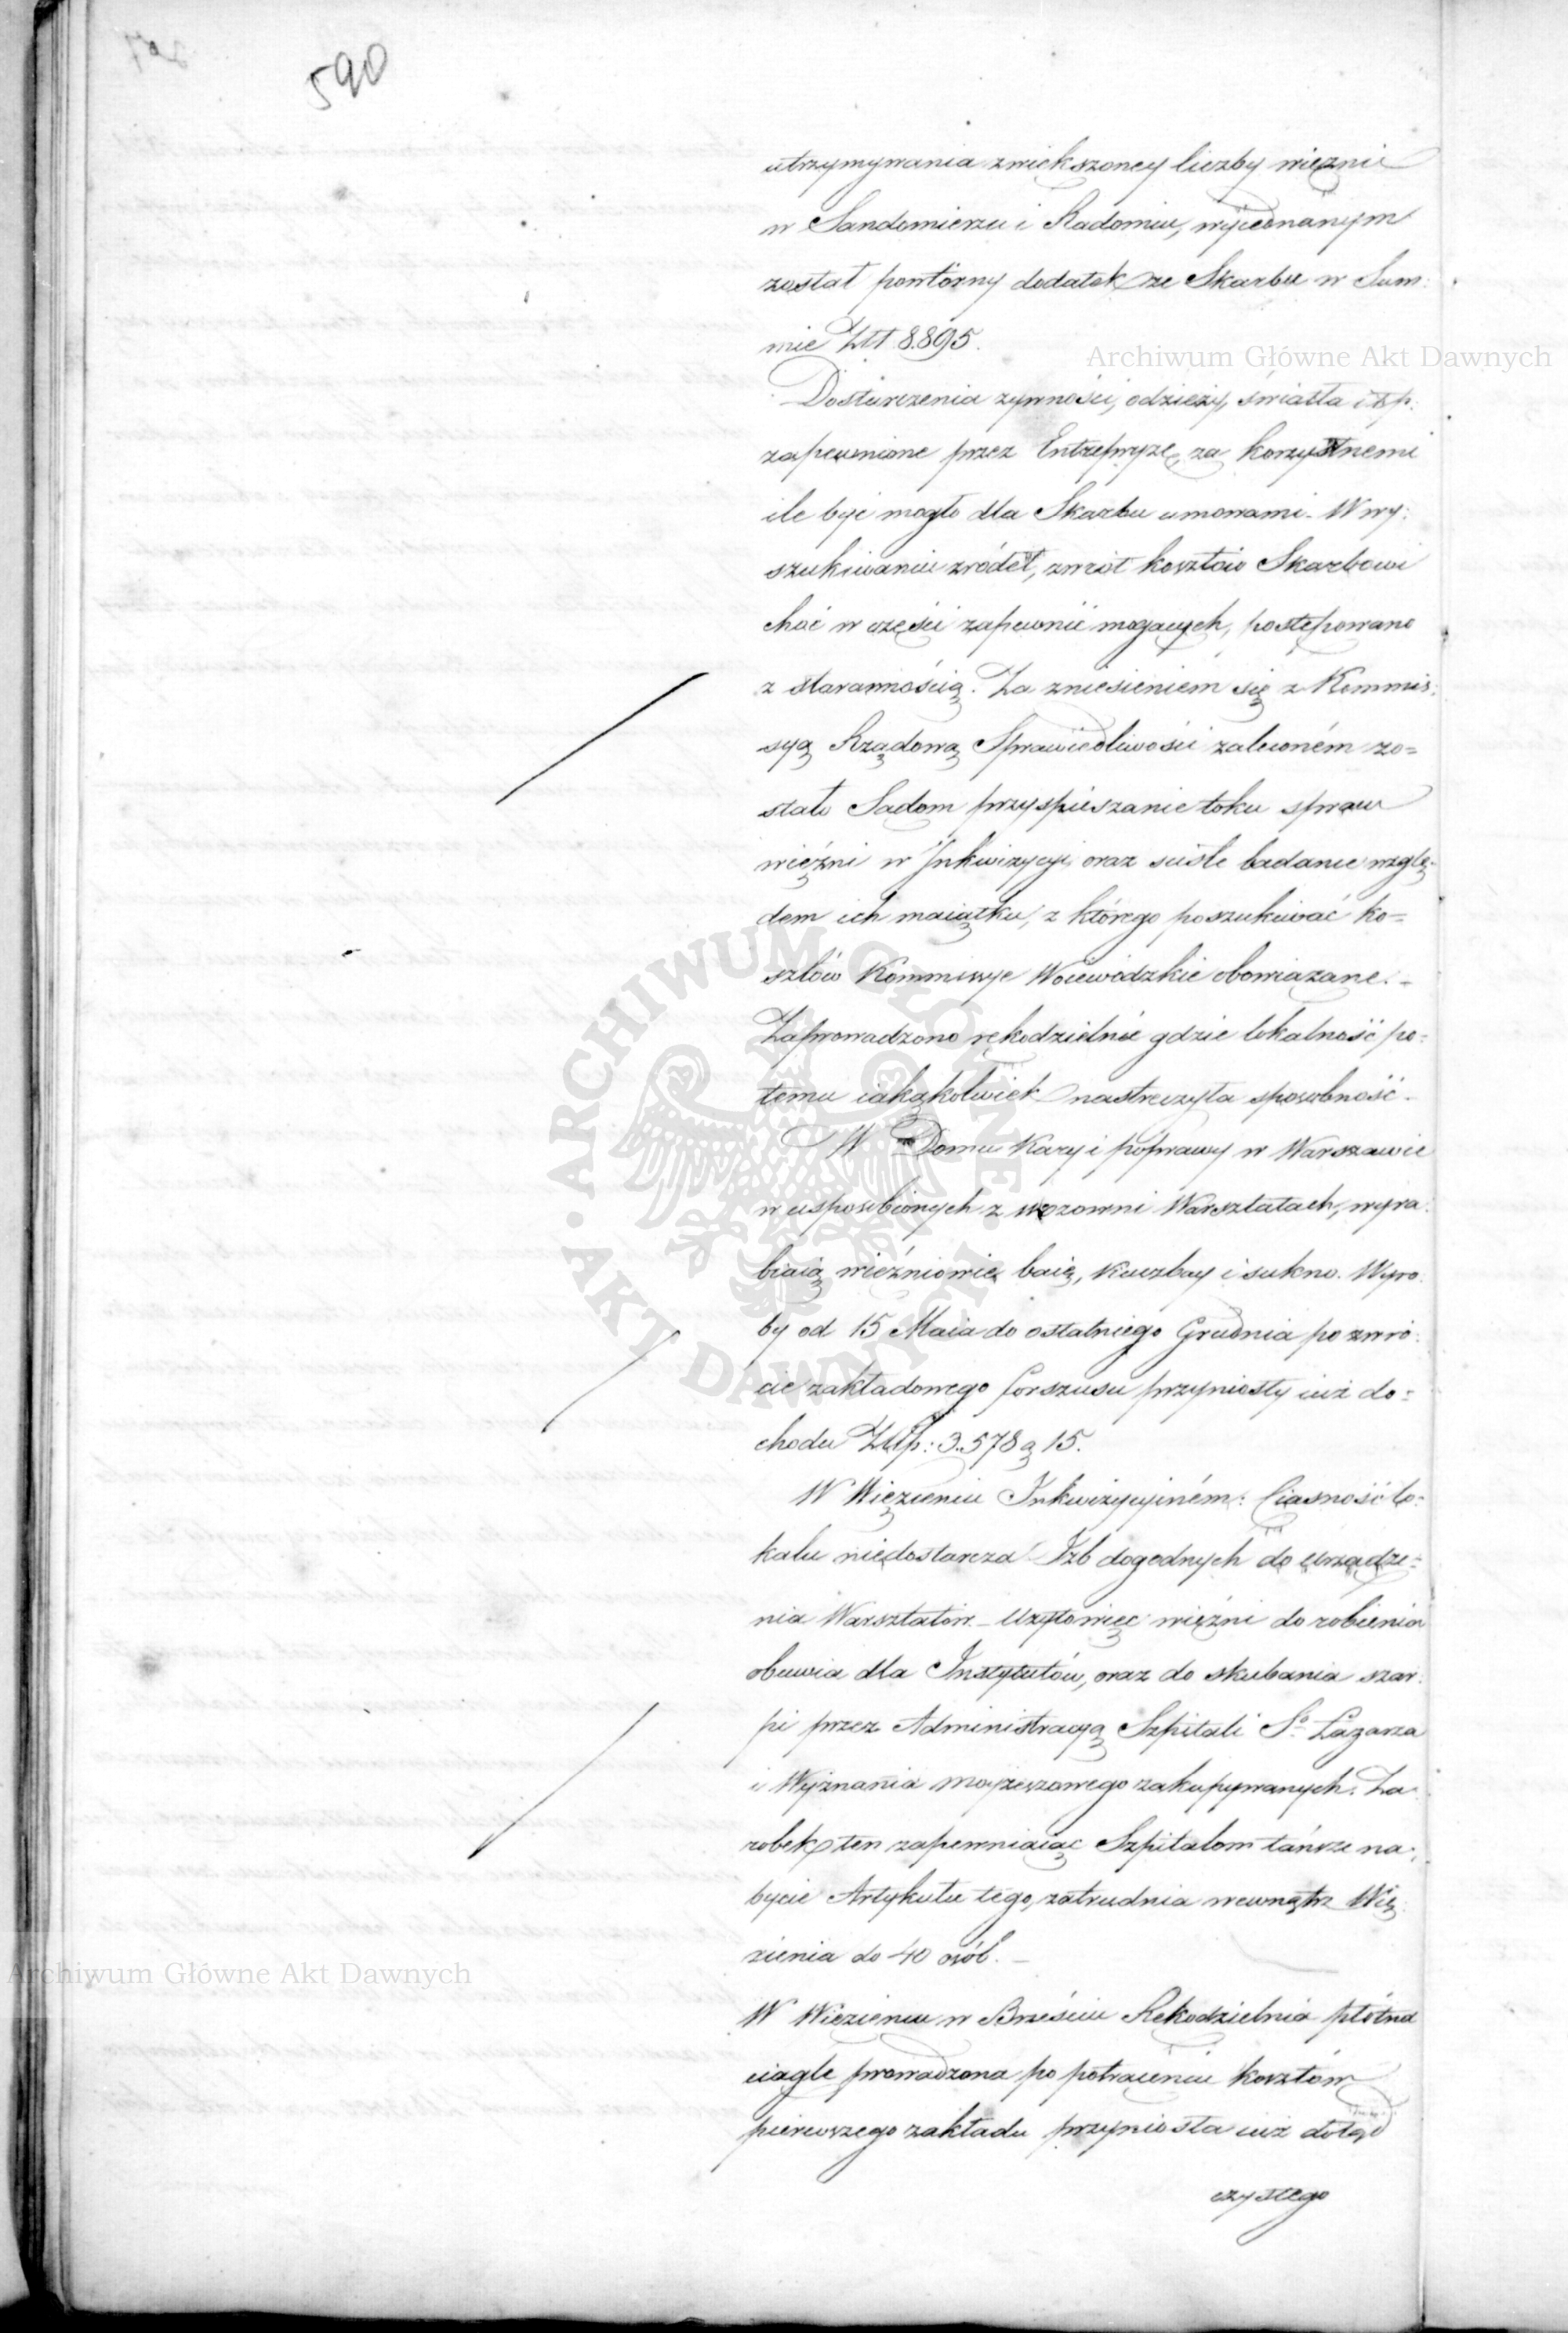 590
utrzymywania zwiekszoney liczby więzni
w Sandomierzu i Radomiu, wyiednanym
został powtórny dodatek ze Skarbu w Sum:
mie Złt 8.895.
Archiwum Główne Akt Dawnych
Dostarczenia zywności, odzieży, światła i t p.
zapewnione przez Entrepryzę, za korzystnemi
ile być mogło dla Skarbu umowami. W wy:
szukiwaniu zródeł, zwrót kosztów Skarbowi
choć w części zapewnić mogących, postępowano
z starannością. Za zniesieniem się z Kommis:
syą Rządową Sprawiedliwości zaleconém zo=
stało Sądom przyspieszanie toku spraw
więźni w Jnkwizycyi, oraz scisłe badanie wzglę-
dem ich maiątku, z którego poszukiwać ko=
sztów Kommissye Woiewódzkie obowiazane. -
Zaprowadzono rękodzielnie gdzie lokalność po-
temu iakąkolwiek nastreczyła sposobność. -
W Domu Kary i poprawy w Warszawie
w usposobionych z wozowni Warsztatach, wyra:
biaią więźniowie baię, kuczbay i sukno. Wyro:
by od 15 Maia do ostatniego Grudnia po zwró:
cie zakładowego forszusu przyniosły iuż do=
chodu Złtp: 3.578 g 15.
W Więzieniu Inkwizycyiném: Ciasność lo:
kalu niedostarcza Izb dogodnych do urządze=
nia Warsztatów. - Użyto więc więźni do robienia
obuwia dla Instytutów, oraz do skubania szar:
pi przez Administracyą Szpitali So Łazarza
i Wyznania mojżeszowego zakupywanych. Za:
robek ten zapewniaiąc Szpitalom tańsze na:
bycie Artykułu tego, zatrudnia wewnątrz Wię:
zienia do 40 osób. -
Archiwum Główne Akt Dawnych
W Więzieniu w Brześciu Rękodzielnia płótna
ciagle prowadzona po potrąceniu kosztów
pierwszego zakładu przyniosła iuż dotąd
czystego
ARCHIWUM GŁÓWNE
AKT DAWNYCH